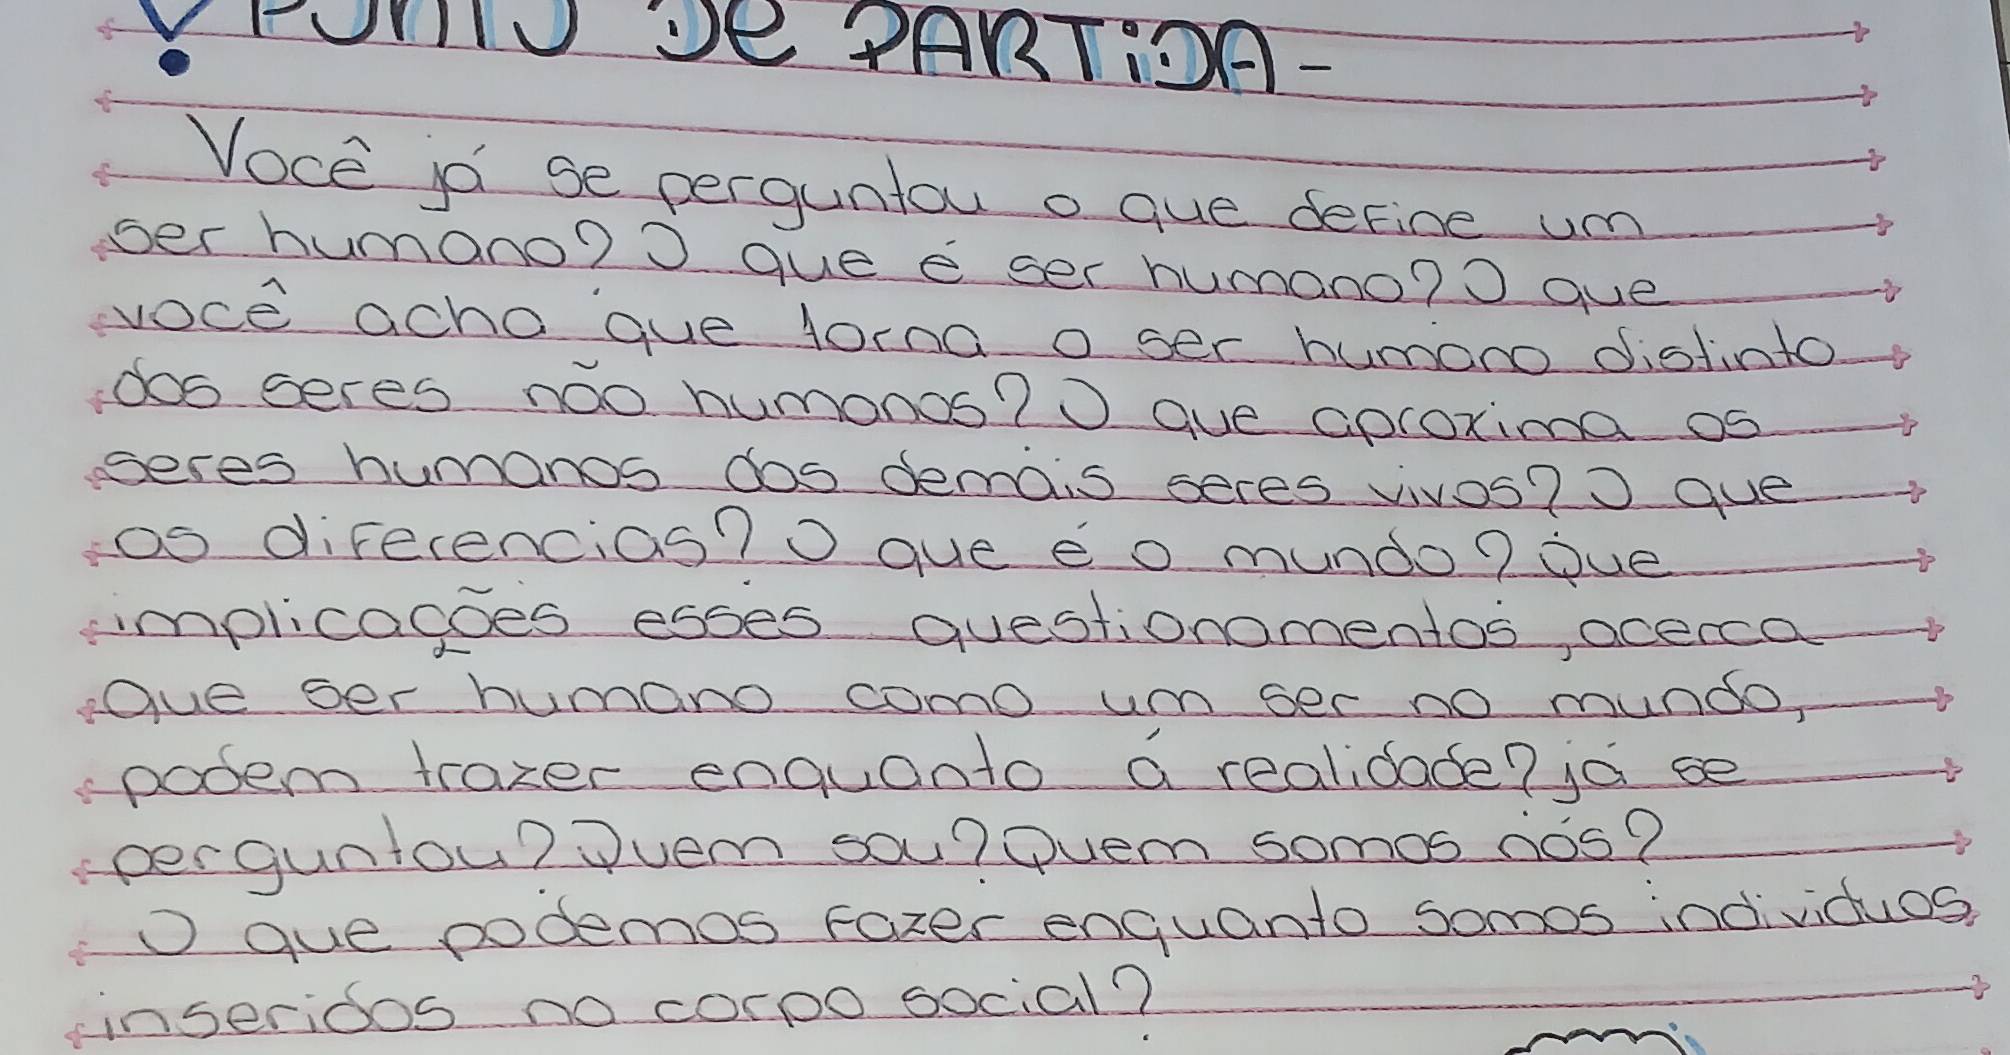 PONTO DE PARTIDA-
Você já se perguntou o que define um
ser humano? O que é ser humano? O que
você acha que torna o ser humano distinto
dos seres não humanos? O que aproxima os
seres humanos dos demais seres vivos? O que
as diferencias? O que é o mundo? Que
implicações esses questionamentos, acerca
que ser humano como um ser no mundo,
podem trazer enquanto á realidade? já se
perguntou? Quem sou? Quem somos nós?
O que podemos fazer enquanto somos individuos,
inseridos no corpo social?